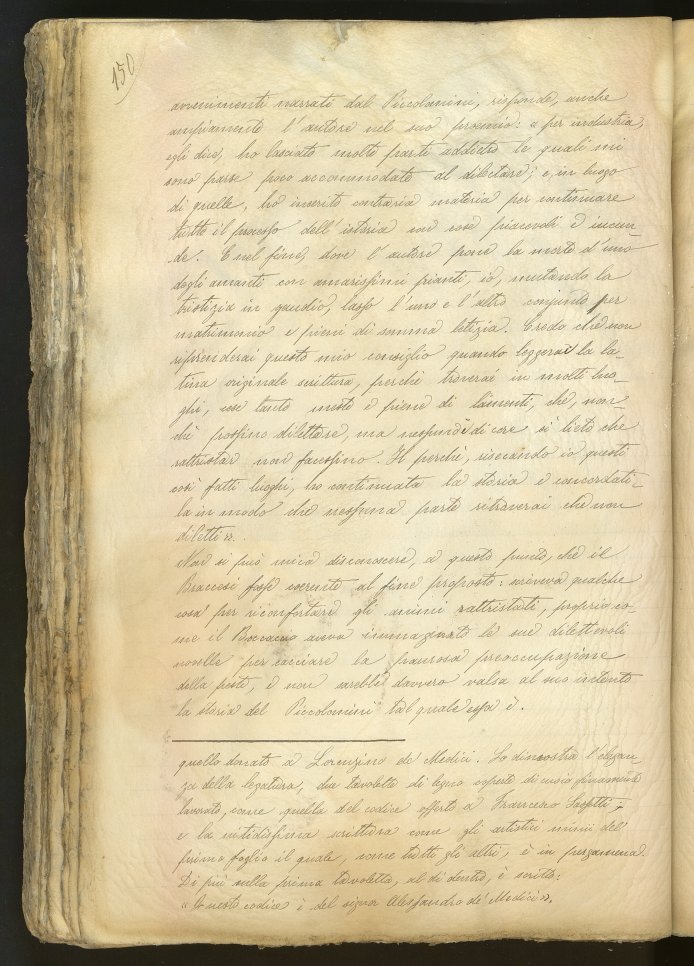 150
avvenimenti narrati dal Piccolomini, risponde, anche
ampiamente l'autore nel suo proemio: « per industria,
egli dice, ho lasciato molte parti addietro le quali mi
sono parse poco accommodate al dilettare; e, in luogo
di quelle, ho inserito contraria materia per continuare
tutto il processo dell'istoria con cose piacevoli e iocun-
de. E nel fine, dove l'autore pone la morte d'uno
degli amanti con amarissimi pianti, io, mutando la
tristizia in gaudio, lasso l'uno e l'altro congiunto per
matrimonio e pieni di somma letizia. Credo che non
riprenderai questo mio consiglio quando leggerai la la-
tina originale scrittura, perchè troverai in molti luo-
ghi, cose tanto meste e piene di lamenti, che, non-
chè possino dilettare, ma nessuno è di core sì lieto che
rattristar non facessino. Il perchè, resecando io questi
così fatti luoghi, ho continuata la storia e concordato-
la in modo che nessuna parte ritroverai che non
diletti ».
Non si può mica disconoscere, a questo punto, che il
Braccesi fosse coerente al fine proposto: scriveva qualche
cosa per riconfortare gli animi rattristati, proprio co-
me il Boccaccio aveva immaginato le sue dilettevoli
novelle per cacciare la paurosa preoccupazione
della peste, e non sarebbe davvero valsa al suo intento
la storia del Piccolomini tal quale essa è.
quello donato a Lorenzino de' Medici. Lo dimostra l'elegan-
za della legatura, due tavolette di legno coperte di cuoio finamente
lavorato, come quella del codice offerto a Francesco Sassetti,
e la nitidissima scrittura come gli artistici minii del
primo foglio il quale, come tutti gli altri, è in pergamena.
Di più nella prima tavoletta, al di dentro, è scritto:
« Questo codice è del signor Alessandro de' Medici ».